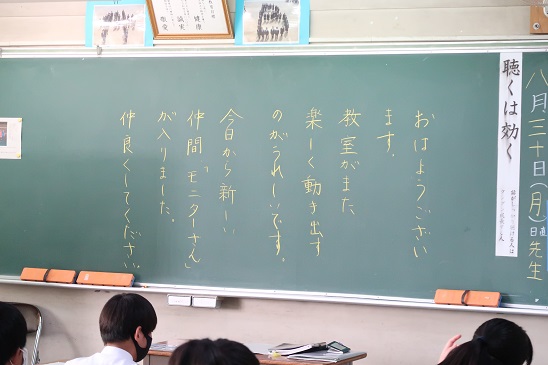 健康
誠実
敬愛
八月三十日(月)
日直
先生
聴くは効く
おはようござい
ます。
教室がまた
楽しく動き出す
のがうれしいです。
今日から新しい
仲間「モニターさん」
が入りました。
仲良くしてください。